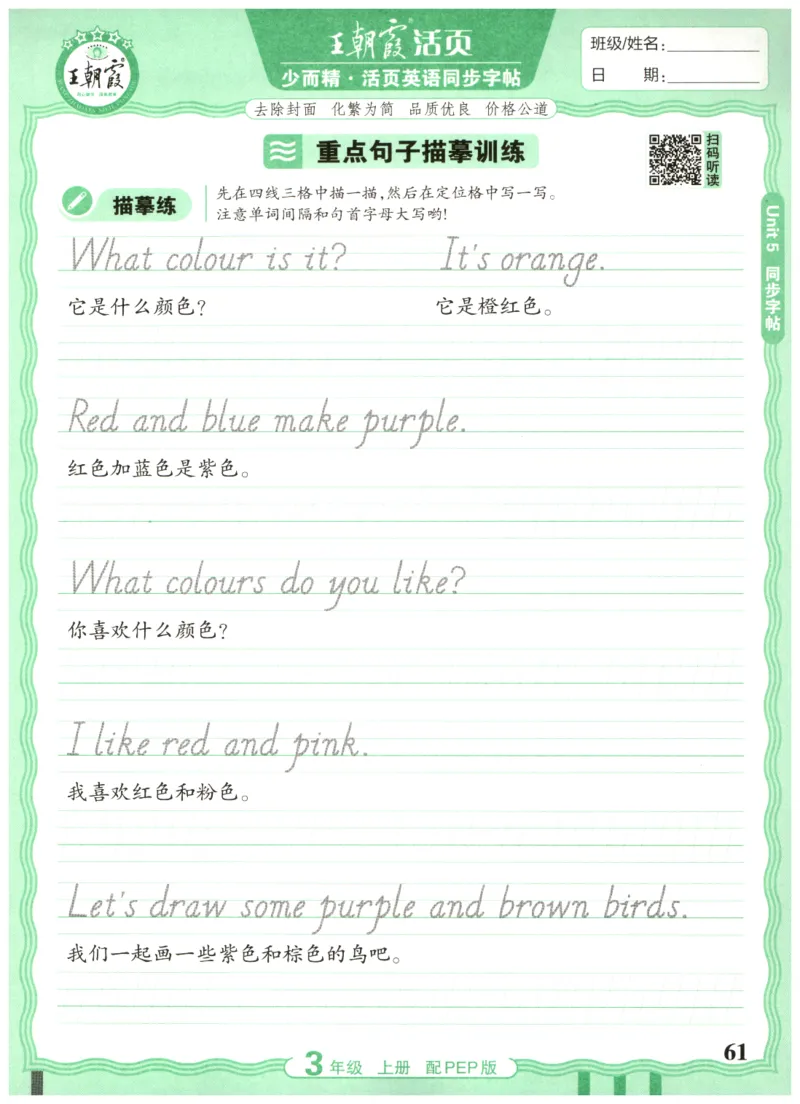 王朝霞
王朝霞®活页
少而精·活页英语同步字帖
班级/姓名:
日 期:
去除封面 化繁为简 品质优良 价格公道
重点句子描摹训练
扫码听读
描摹练
先在四线三格中描一描,然后在定位格中写一写。
注意单词间隔和句首字母大写哟!
Unit 5 同步字帖
What colour is it? It's orange.
它是什么颜色? 它是橙红色。
Red and blue make purple.
红色加蓝色是紫色。
What colours do you like?
你喜欢什么颜色?
I like red and pink.
我喜欢红色和粉色。
Let's draw some purple and brown birds.
我们一起画一些紫色和棕色的鸟吧。
3年级 上册 配PEP版
61